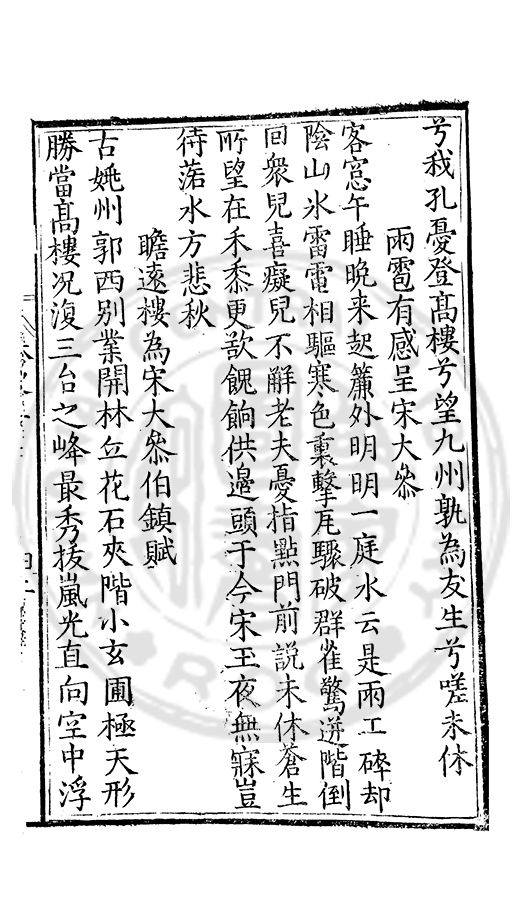 兮我孔憂登髙樓兮望九州孰為友生兮嗟未休
雨雹有感呈宋大叅
客窓午睡晩来起簾外明明一庭水云是雨工碑却
陰山氷雷電相驅寒色裏擊瓦驟破群雀驚迸階倒
回衆兒喜癡兒不解老夫憂指㸃門前説未休蒼生
所望在禾黍更欲餽餉供邊頭于今宋玉夜無寐豈
待落水方悲秋
瞻逺樓為宋大叅伯鎮賦
古姚州郭西别業開林丘花石夾階小玄圃極天形
勝當髙樓况復三台之峰最秀拔嵐光直向空中浮